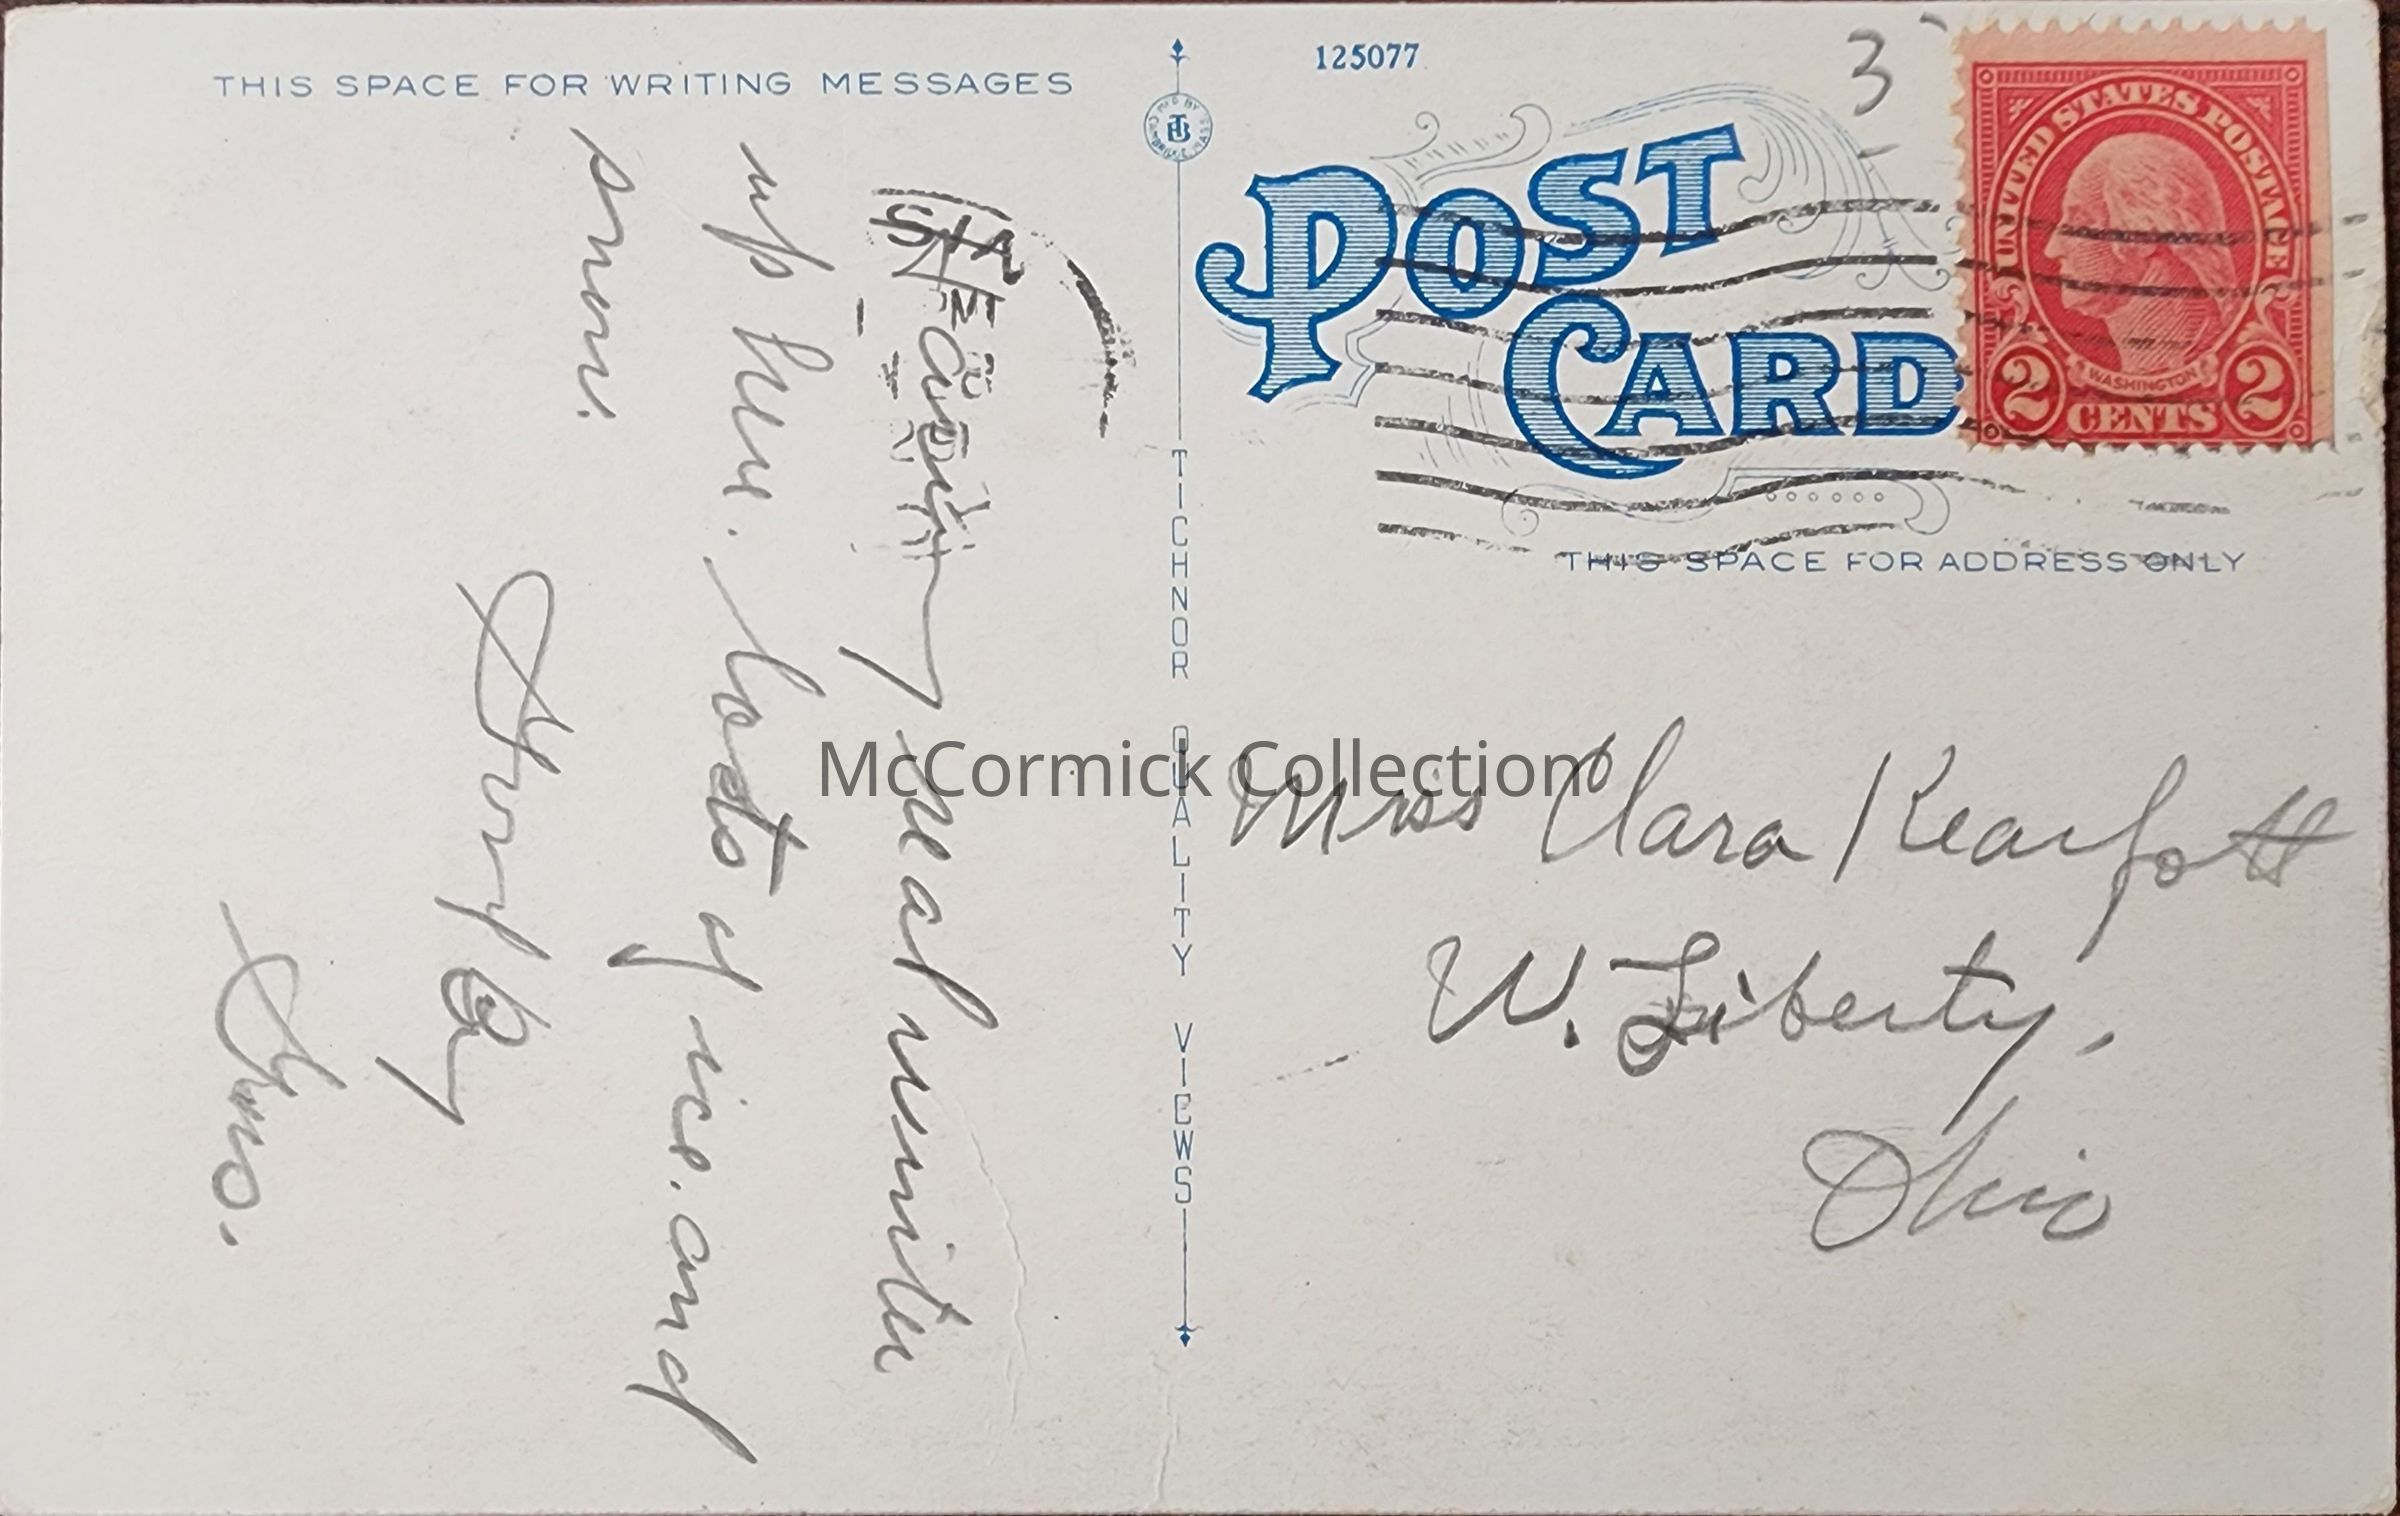 THIS SPACE FOR WRITING MESSAGES
Having real winter
up here. Lots of ice. and
snow.
125077
3
POST
CARD
UNITED STATES POSTAGE
WASHINGTON
2 CENTS 2
THIS SPACE FOR ADDRESS ONLY
TICHNOR QUALITY VIEWS
McCormick Collection
Miss Clara Kearfott
W. Liberty,
Ohio